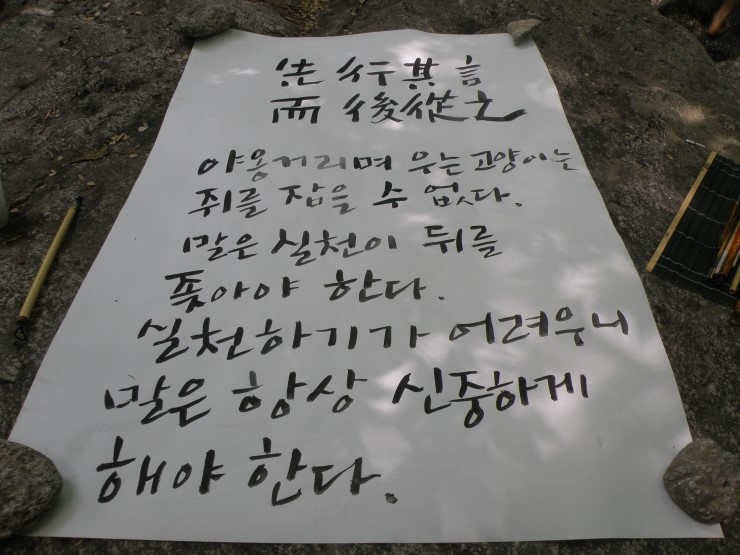 先行其言
而後從之
야옹거리며 우는 고양이는
쥐를 잡을 수 없다.
말은 실천이 뒤를
좇아야 한다.
실천하기가 어려우니
말은 항상 신중하게
해야 한다.